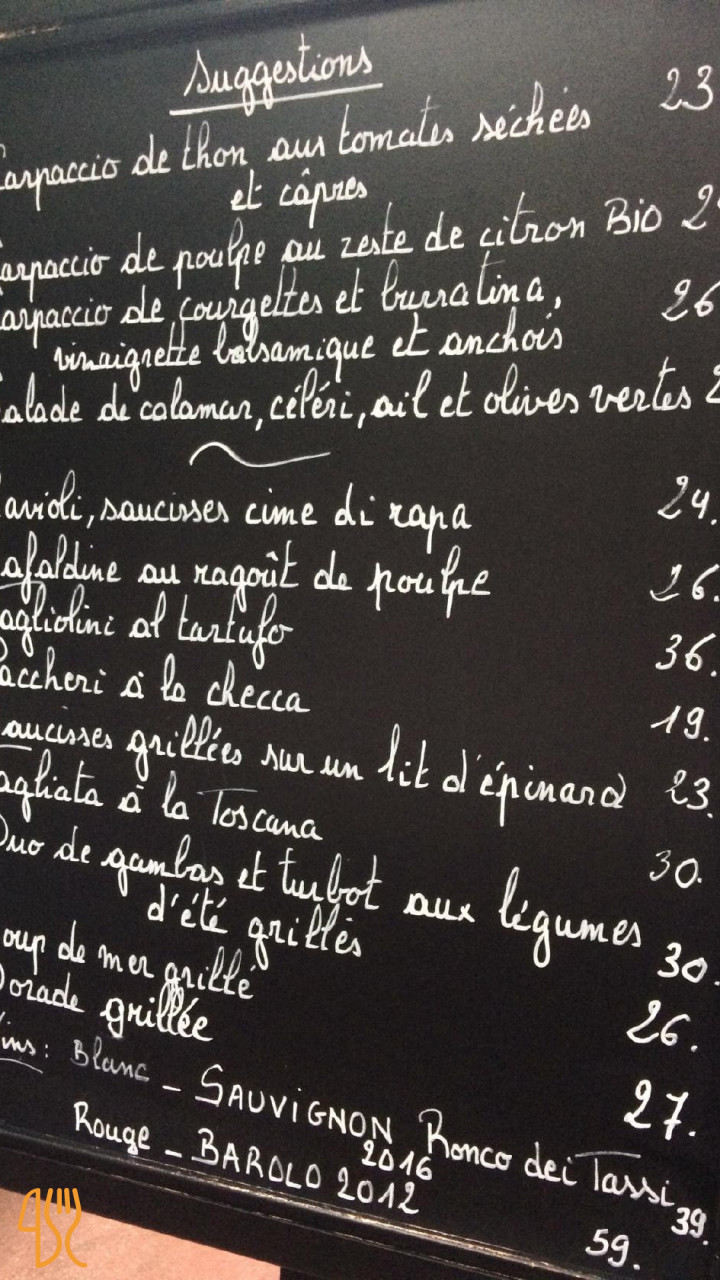 Suggestions
Carpaccio de thon aux tomates séchées 23
et câpres
Carpaccio de poulpe au zeste de citron Bio 2
arpaccio de courgettes et burratina, 26
vinaigrette balsamique et anchois
alade de calamar, céléri, ail et olives vertes 2
avioli, saucisses cime di rapa 24.
afaldine au ragoût de poulpe 26.
agliolini al tartufo 36.
accheri à la checca 19.
aucisses grillées sur un lit d'épinard 23.
agliata à la Toscana 30.
Duo de gambas et turbot aux légumes
d'été grillés 30.
oup de mer grillé 26.
Dorade grillée 27.
ins: Blanc - SAUVIGNON Ronco dei Tassi
2016 39.
Rouge - BAROLO 2012 59.